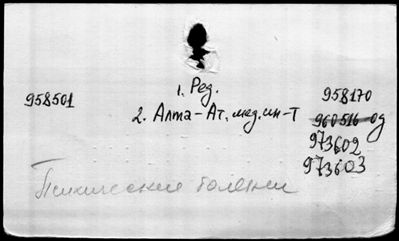 1. Ред.
958501
958170
2. Алма-Ат. мед. ин-т
960516-од
973602
973603
Психические болезни